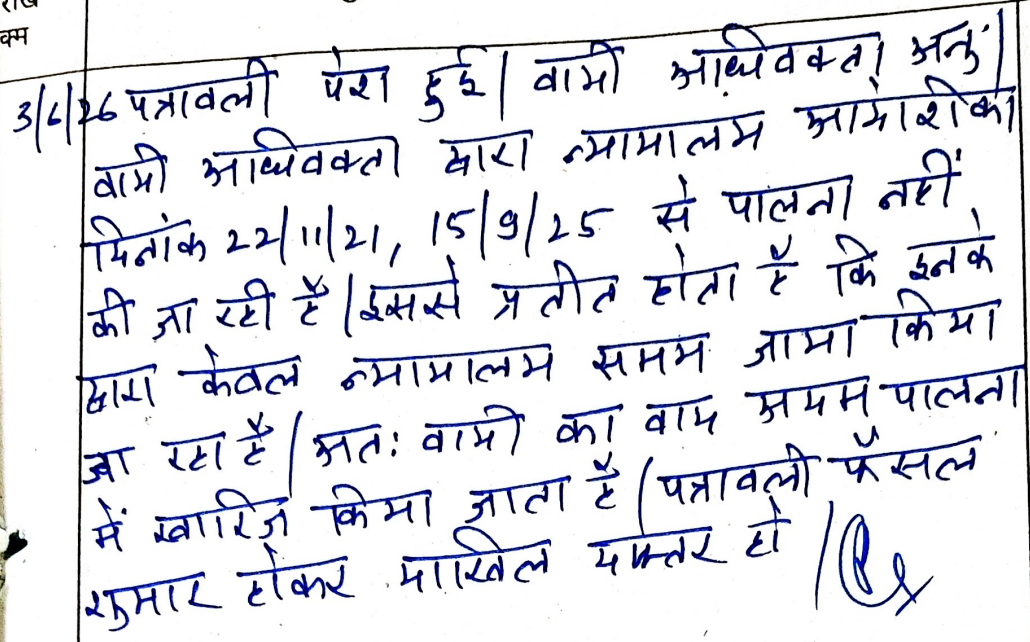 क्म
3/6/26 पत्रावली पेश हुई। वादी अधिवक्ता अनु॰।
वादी अधिवक्ता द्वारा न्यायालय आदेशिका
दिनांक 22/11/21, 15/9/25 से पालना नहीं
की जा रही है। इससे प्रतीत होता है कि इनके
द्वारा केवल न्यायालय समय जाया किया
जा रहा है। अतः वादी का वाद अदम पालना
में खारिज किया जाता है। पत्रावली फैसल
शुमार होकर दाखिल दफ्तर हो।